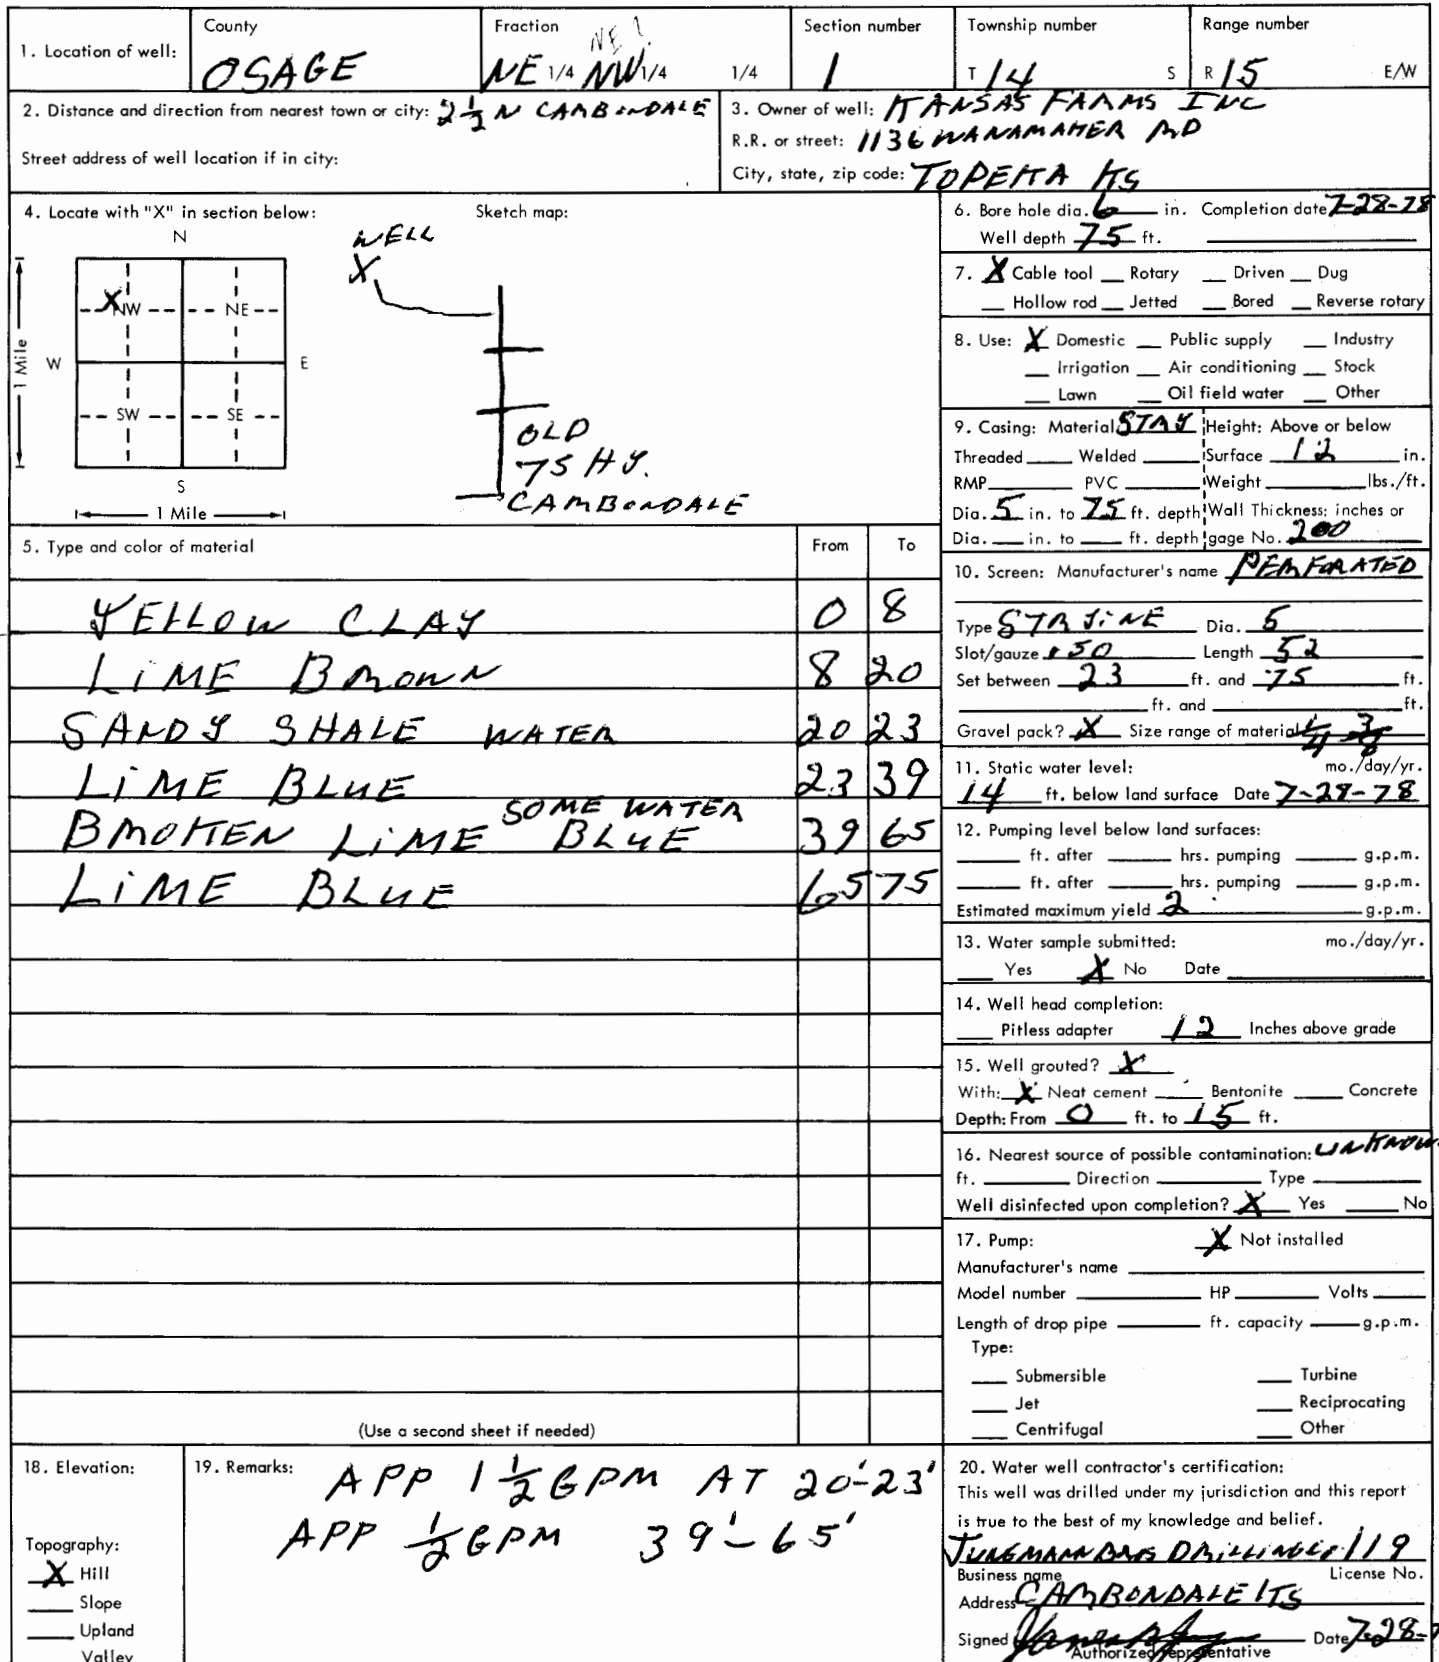 County Fraction Section number Township number Range number
NE
1. Location of well: OSAGE NE 1/4 NW 1/4 1/4 1 T 14 S R 15 E/W
2. Distance and direction from nearest town or city: 2 1/2 N CARBONDALE
Street address of well location if in city:
3. Owner of well: KANSAS FARMS INC
R.R. or street: 1136 WANAMAKER RD
City, state, zip code: TOPEKA KS
4. Locate with "X" in section below: Sketch map:
N
WELL
X
X NW NE
1 Mile W E
SW SE
S
1 Mile
OLD
75 HY.
CARBONDALE
5. Type and color of material From To
YELLOW CLAY 0 8
LIME BROWN 8 20
SANDY SHALE WATER 20 23
LIME BLUE 23 39
SOME WATER
BROKEN LIME BLUE 39 65
LIME BLUE 65 75
(Use a second sheet if needed)
6. Bore hole dia. 6 in. Completion date 7-28-78
Well depth 75 ft.
7. X Cable tool Rotary Driven Dug
Hollow rod Jetted Bored Reverse rotary
8. Use: X Domestic Public supply Industry
Irrigation Air conditioning Stock
Lawn Oil field water Other
9. Casing: Material Height: Above or below
Threaded Welded Surface 12 in.
RMP PVC Weight lbs./ft.
Dia. 5 in. to 75 ft. depth Wall Thickness: inches or
Dia. in. to ft. depth gage No. 200
10. Screen: Manufacturer's name PERFORATED
Type Dia. 5
Slot/gauze .50 Length 52
Set between 23 ft. and 75 ft.
ft. and ft.
Gravel pack? X Size range of material 1/4 3/8
11. Static water level: mo./day/yr.
14 ft. below land surface Date 7-28-78
12. Pumping level below land surfaces:
ft. after hrs. pumping g.p.m.
ft. after hrs. pumping g.p.m.
Estimated maximum yield 2 g.p.m.
13. Water sample submitted: mo./day/yr.
Yes X No Date
14. Well head completion:
Pitless adapter 12 Inches above grade
15. Well grouted? X
With: X Neat cement Bentonite Concrete
Depth: From 0 ft. to 15 ft.
16. Nearest source of possible contamination: UNKNOW
ft. Direction Type
Well disinfected upon completion? X Yes No
17. Pump: X Not installed
Manufacturer's name
Model number HP Volts
Length of drop pipe ft. capacity g.p.m.
Type:
Submersible Turbine
Jet Reciprocating
Centrifugal Other
18. Elevation:
Topography:
X Hill
Slope
Upland
Valley
19. Remarks: APP 1 1/2 GPM AT 20'-23'
APP 1/2 GPM 39'-65'
20. Water well contractor's certification:
This well was drilled under my jurisdiction and this report
is true to the best of my knowledge and belief.
JUNGMANN BROS DRILLING 119
Business name License No.
Address CARBONDALE KS
Signed Date 7-28-
Authorized representative